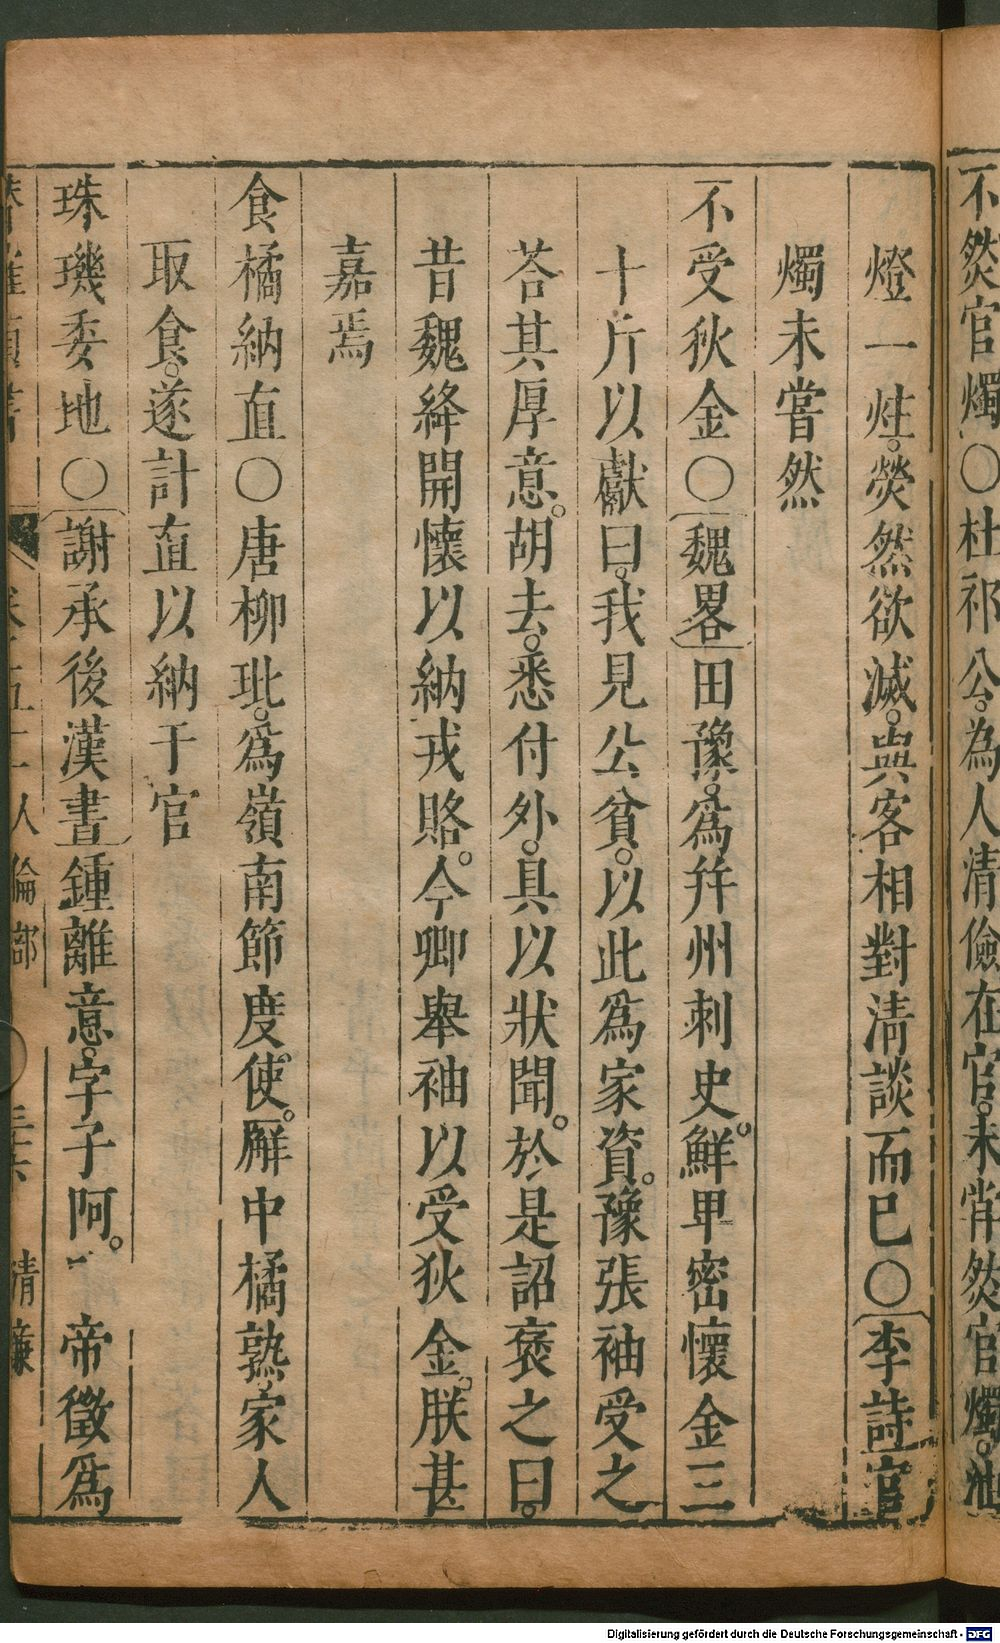 不然官燭〇杜祁公。為人清儉在官。未嘗然官燭。油
燈一炷。熒然欲滅。與客相對清談而已〇李詩官
燭未嘗然
不受狄金〇魏畧田豫。為幷州刺史。鮮卑密懷金三
十斤以獻曰。我見公貧。以此為家資。豫張袖受之
荅其厚意。胡去。悉付外。具以狀聞。於是詔褒之曰。
昔魏絳開懷以納戎賂。今卿舉袖以受狄金。朕甚
嘉焉
食橘納直〇唐柳玭。為嶺南節度使。廨中橘熟。家人
取食。遂計直以納于官
珠璣委地〇謝承後漢書鍾離意。字子阿。 帝徵為
人倫部 清廉
Digitalisierung gefördert durch die Deutsche Forschungsgemeinschaft - DFG